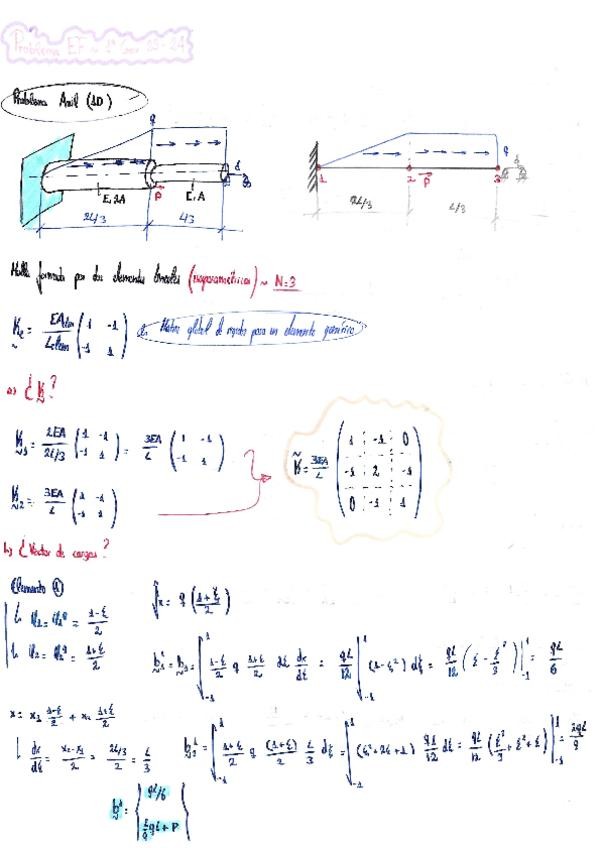 Problema EF ~ 1er Cuar 23-24
Problema Axil (1D)
q
E, 2A
P
E, A
δ
2L/3
L/3
q
1
2
P
3
δ
2L/3
L/3
Malla formada por dos elementos lineales (isoparamétricos) ~ N=3
Ke = EAelem/Lelem (1 -1; -1 1) Matriz global de rigidez para un elemento genérico
a) ¿K?
K1 = 2EA/(2L/3) (1 -1; -1 1) = 3EA/L (1 -1; -1 1)
K2 = 3EA/L (1 -1; -1 1)
K = 3EA/L (1 -1 0; -1 2 -1; 0 -1 1)
b) ¿Vector de cargas?
Elemento 1
fx = q ((1+ξ)/2)
= (1-ξ)/2
= (1+ξ)/2
= ∫ (1-ξ)/2 q (1+ξ)/2 dx/dξ dξ = qL/12 ∫ (1-ξ²) dξ = qL/12 (ξ - ξ³/3) |₋₁¹ = qL/6
x = x1 (1-ξ)/2 + x2 (1+ξ)/2
dx/dξ = (x2-x1)/2 = (2L/3)/2 = L/3
= ∫ (1+ξ)/2 q (1+ξ)/2 L/3 dξ = ∫ (ξ²+2ξ+1) qL/12 dξ = qL/12 (ξ³/3 + ξ² + ξ) |₋₁¹ = 2qL/9
b¹ = { qL/6
qL + P }